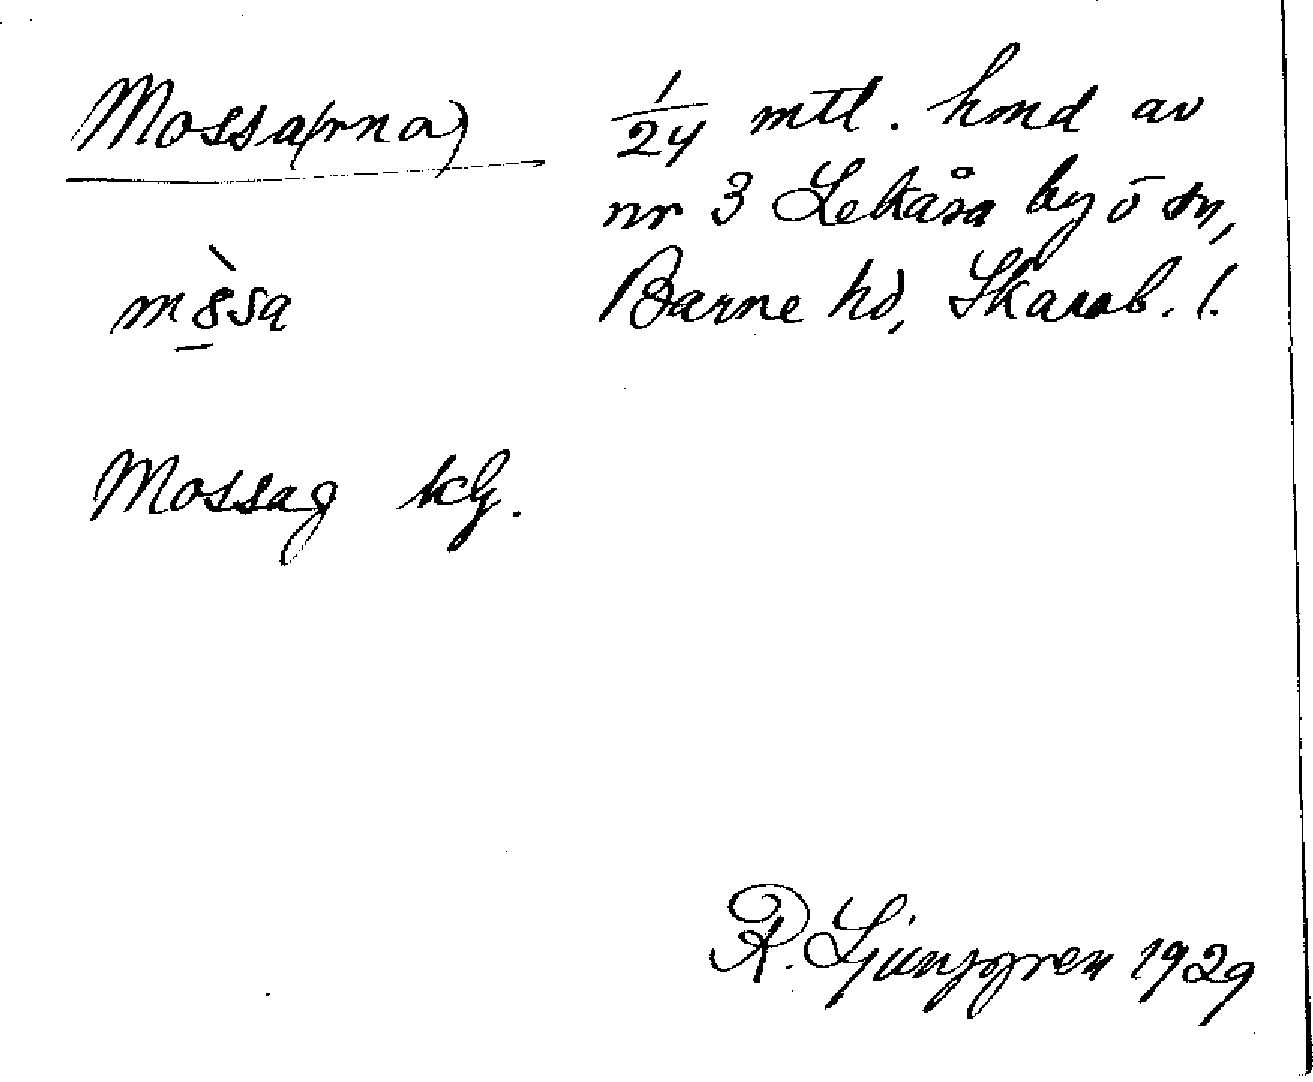 Mossa(rna)
1/24 mtl. hmd av
nr 3 Lekåsa by o sn,
Barne hd, Skarab. l.
Mossag kg.
R. Ljunggren 1929